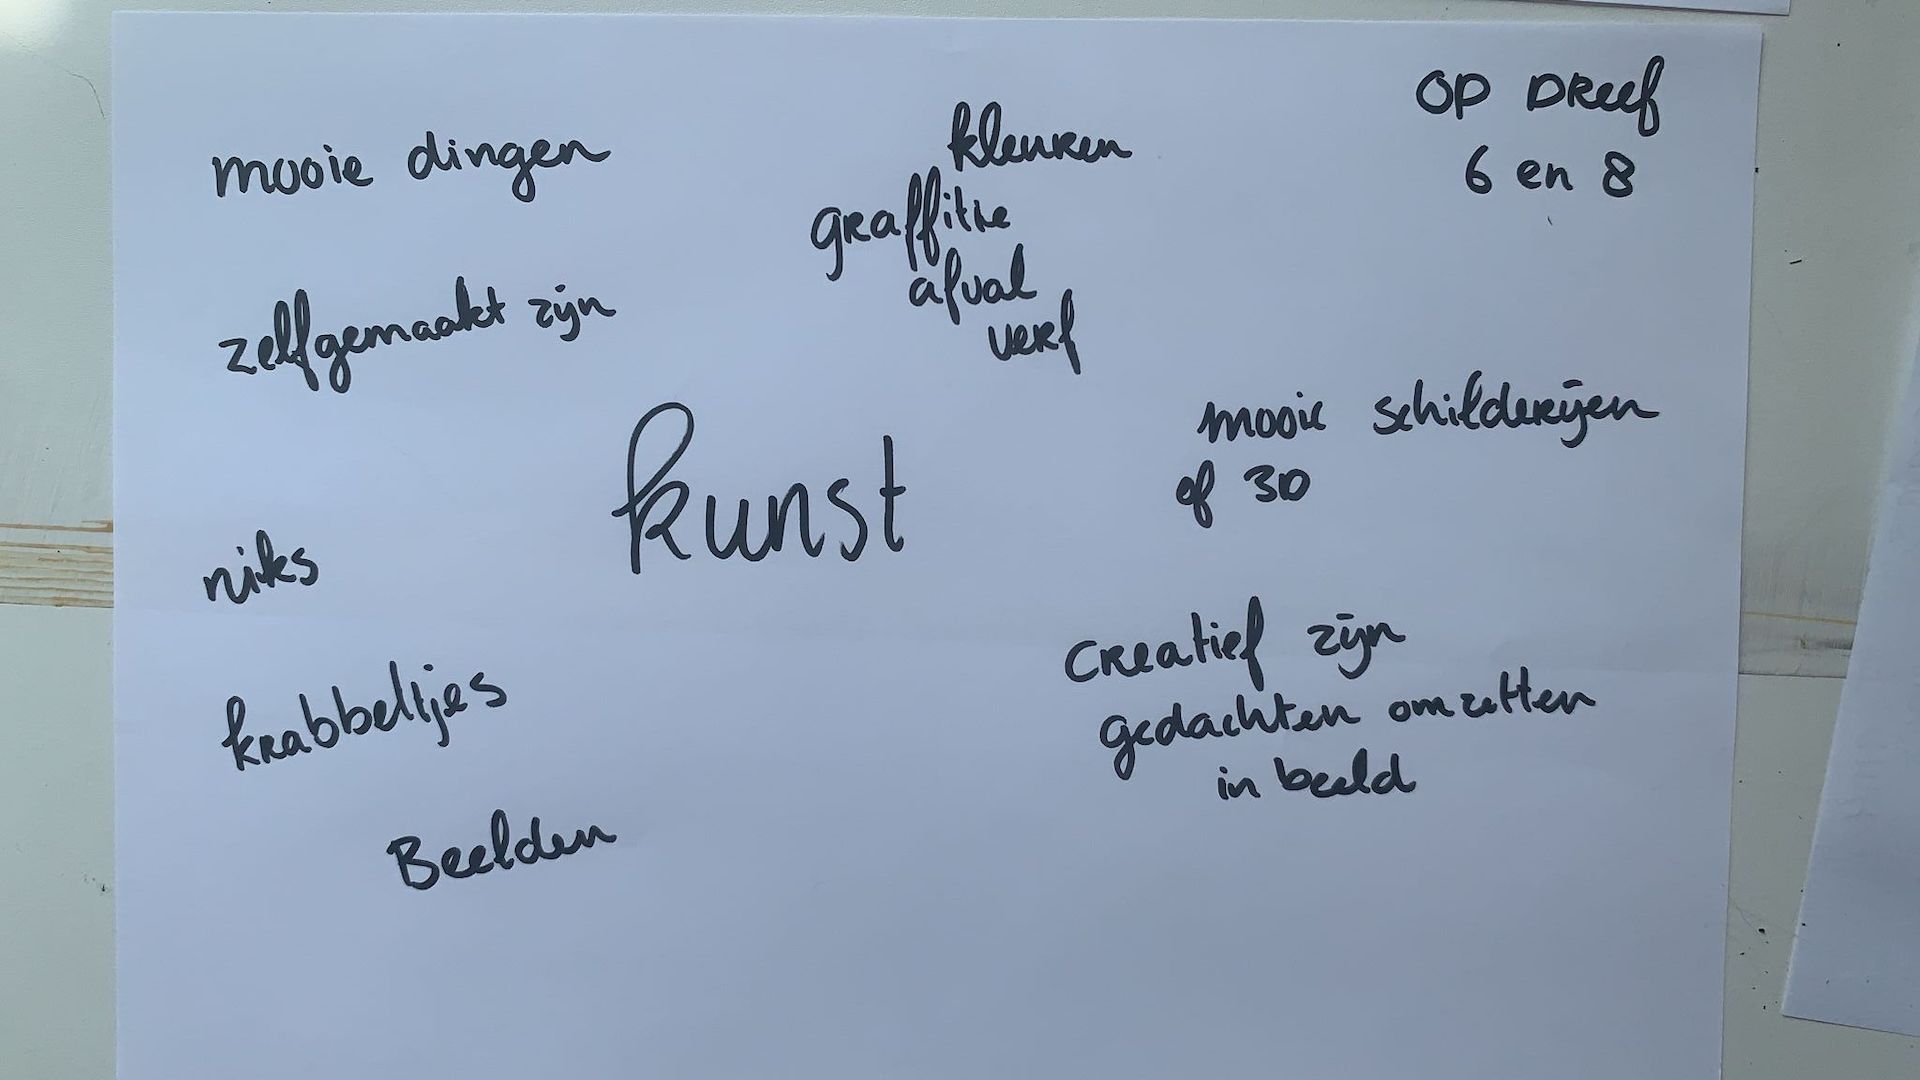 OP DReef
6 en 8
mooie dingen
kleuren
graffitie
afval
verf
zelfgemaakt zijn
mooie schilderijen
of 3D
kunst
niks
creatief zijn
gedachten omzetten
in beeld
krabbeltjes
Beelden